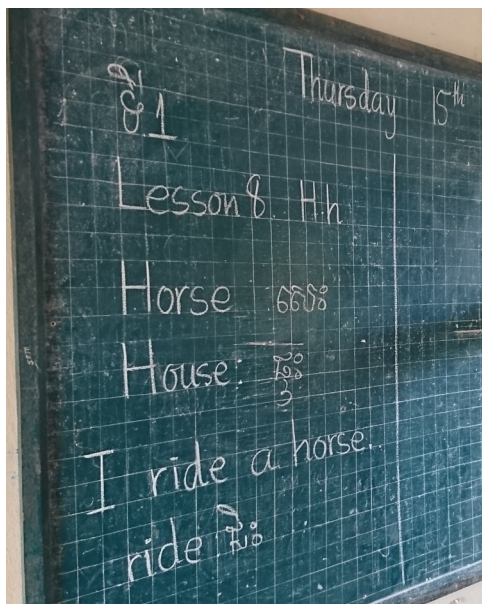 Thursday 15th
ទី 1
Lesson 8. H.h
Horse : សេះ
House : ផ្ទះ
I ride a horse.
ride : ជិះ